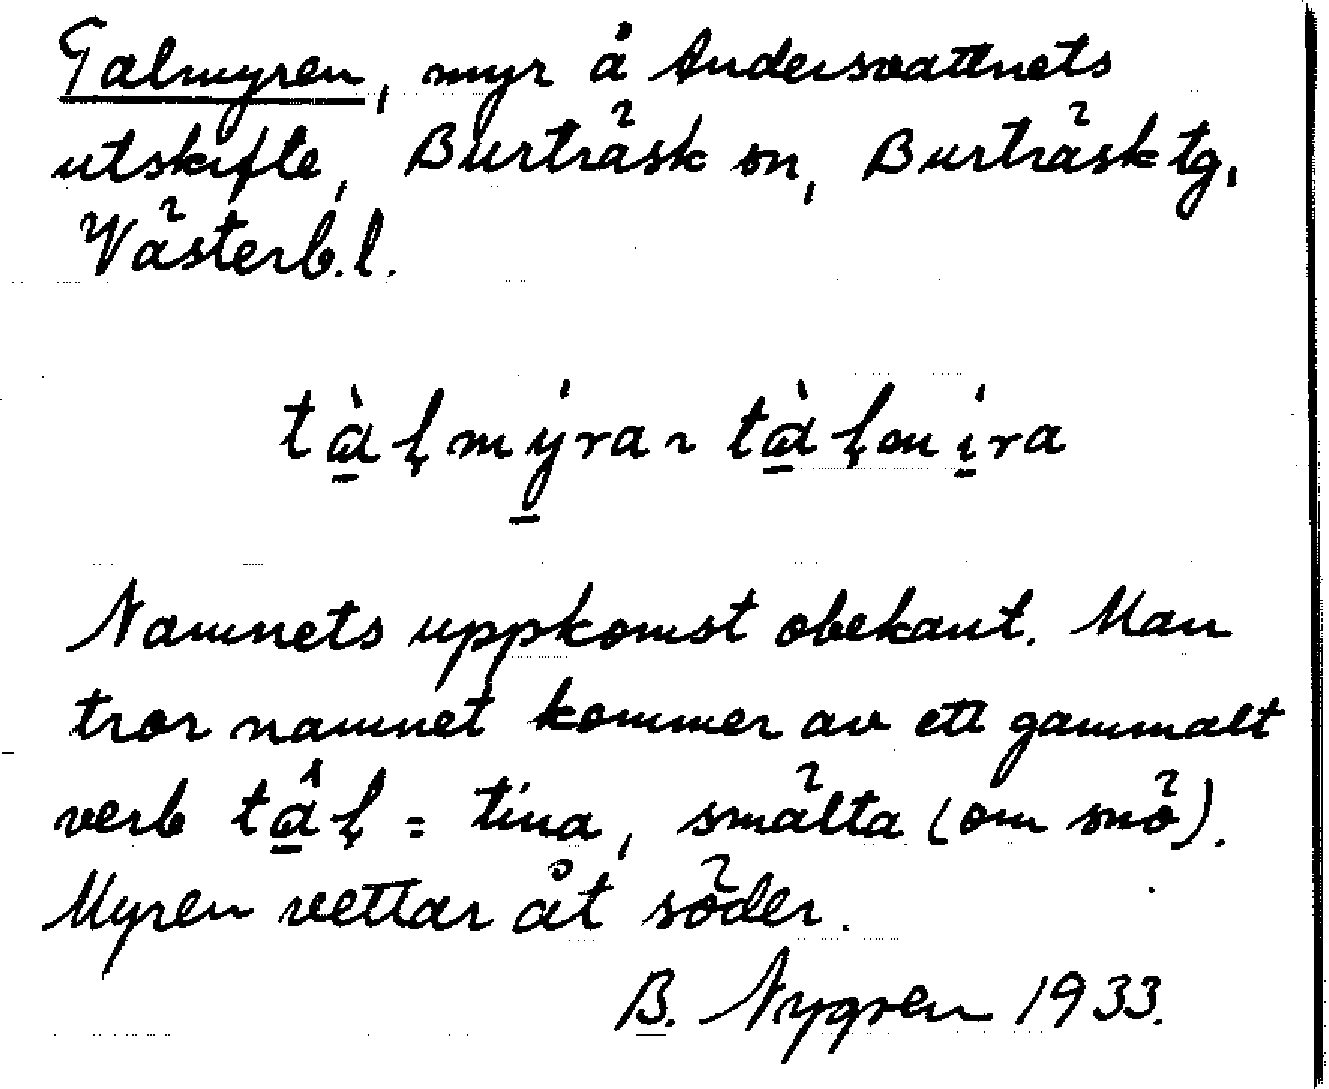 Talmyren, myr å Andersvattnets
utskifte, Burträsk sn, Burträsk tg,
Västerb.l.
tàl̥mýra ~ tàl̥míra
Namnets uppkomst obekant. Man
tror namnet kommer av ett gammalt
verb tâl̥ = tina, smälta (om snö).
Myren vettar åt söder.
B. Nygren 1933.